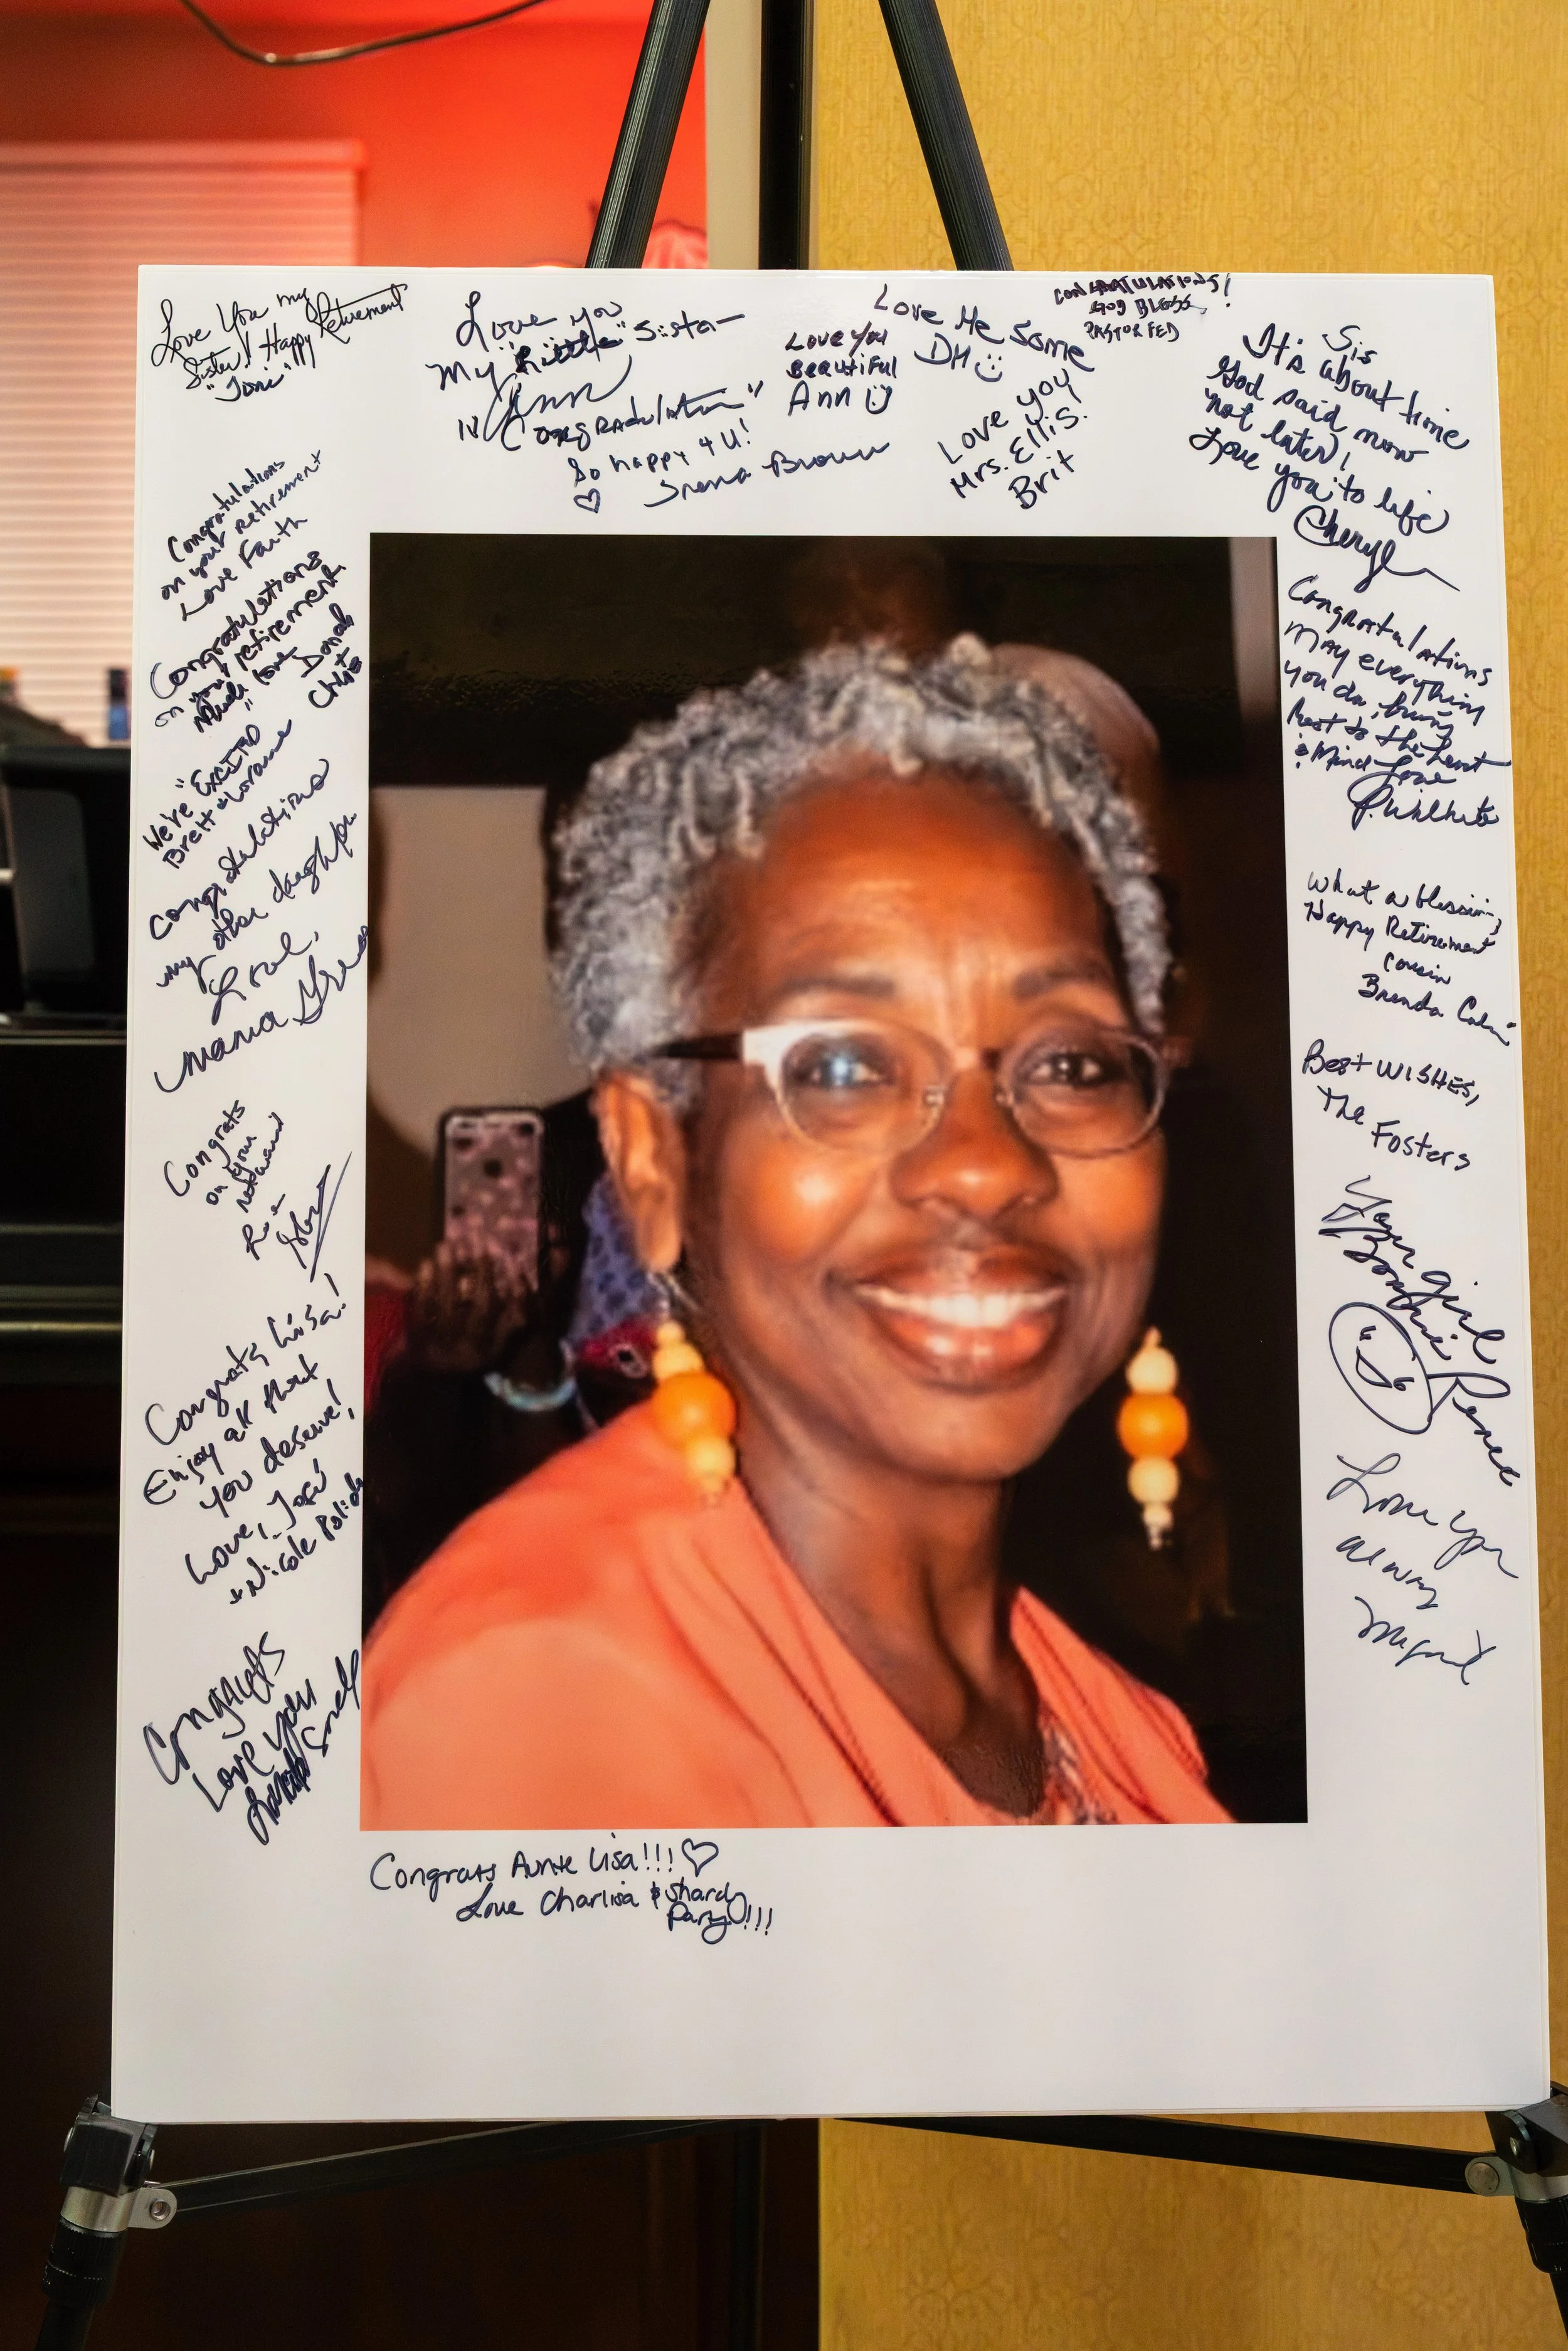 Love You my
Sister! Happy Retirement
"Toni"
Love you
My "Little" Sista
Ann
Congradulation"
So happy 4 U!
♡ Brown
Love You
Beautiful
Ann
Love Me Some
DM
Love you
Mrs. Ellis.
Brit
CONGRATULATIONS!
GOD BLESS
PASTOR FED
Sis
It's about time
God said now
not later!
Love you to life
Cheryl
Congratulations
on your retirement
Love Faith
Congratulations
on your retirement
Much love
Donah
+
Chris
We're "EXCITED"
Brett & Lorraine
Congratulations
my other daughter
Love,
Mama
Congrats
on your
Congrats Lisa!
Enjoy all that
you deserve!
Love, José
+ Nicole
Congrats
Love you
Congratulations
May everything
you do, bring
Rest to the heart
& Mind Love
What a blessing,
Happy Retirement
Cousin
Brenda
Best WISHES,
The Fosters
Your girl
Bonnie Renee
Love you
alway
Congrats Aunte Lisa!!! ♡
Love Charlisa & Shard
Pary!!!